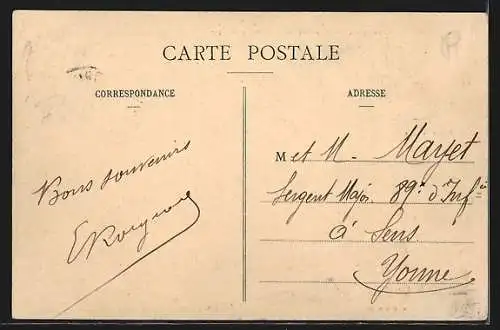 CARTE POSTALE
CORRESPONDANCE
Bons souvenirs
ADRESSE
M et M - Mayet
Sergent Major 89e d'Infie
à Sens
Yonne